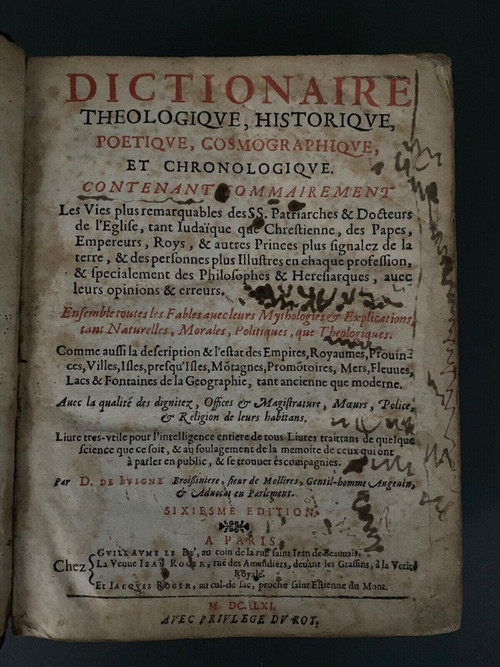 DICTIONAIRE
THEOLOGIQVE, HISTORIQVE,
POETIQVE, COSMOGRAPHIQVE,
ET CHRONOLOGIQVE.
CONTENANT SOMMAIREMENT
Les Vies plus remarquables des SS. Patriarches & Docteurs
de l'Eglise, tant Iudaïque que Chrestienne, des Papes,
Empereurs, Roys, & autres Princes plus signalez de la
terre, & des personnes plus Illustres en chaque profession,
& specialement des Philosophes & Heresiarques, auec
leurs opinions & erreurs.
Ensemble toutes les Fables auec leurs Mythologies & Explications,
tant Naturelles, Morales, Politiques, que Theologiques.
Comme aussi la description & l'estat des Empires, Royaumes, Prouin-
ces, Villes, Isles, presqu'Isles, Mõtagnes, Promõtoires, Mers, Fleuues,
Lacs & Fontaines de la Geographie, tant ancienne que moderne.
Auec la qualité des dignitez, Offices & Magistrature, Mœurs, Police,
& Religion de leurs habitans.
Liure tres-vtile pour l'intelligence entiere de tous Liures traittans de quelque
science que ce soit, & au soulagement de la memoire de ceux qui ont
à parler en public, & se trouuer és compagnies.
Par D. DE IVIGNE Broissiniere, sieur de Mollires, Gentil-homme Angeuin,
& Aduocat en Parlement.
SIXIESME EDITION
A PARIS,
Chez
GVILLAVME LE BE', au coin de la ruë saint Iean de Beauuais.
La Veuue IEAN ROGER, ruë des Amendiers, deuant les Grassins, à la Verité
Royale.
Et IACQVES ROGER, au cul-de sac, proche saint Estienne du Mont.
M. DC. LXI.
AVEC PRIVLEGE DV ROY.